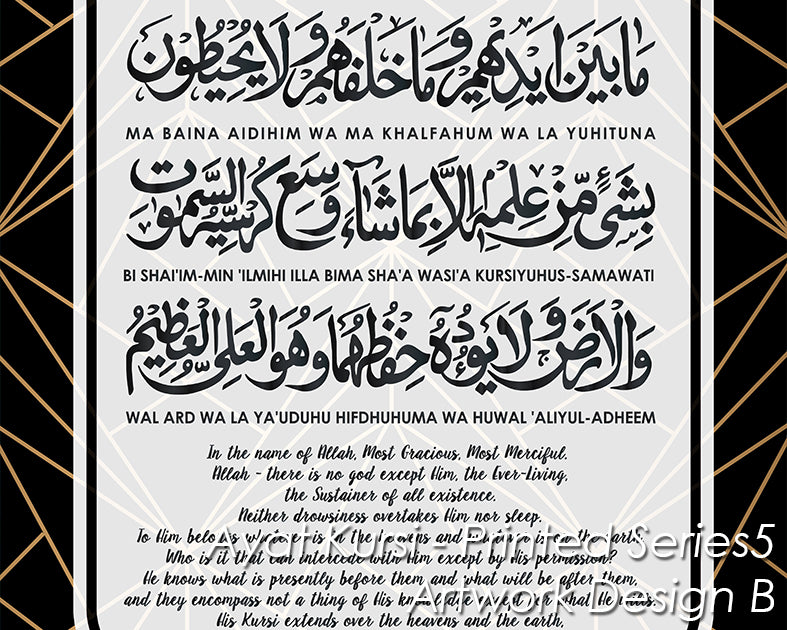 ما بين ايديهم وما خلفهم ولا يحيطون
MA BAINA AIDIHIM WA MA KHALFAHUM WA LA YUHITUNA
بشيء من علمه الا بما شاء وسع كرسيه السموت
BI SHAI'IM-MIN 'ILMIHI ILLA BIMA SHA'A WASI'A KURSIYUHUS-SAMAWATI
والارض ولا يوده حفظهما وهو العلي العظيم
WAL ARD WA LA YA'UDUHU HIFDHUHUMA WA HUWAL 'ALIYUL-ADHEEM
In the name of Allah, Most Gracious, Most Merciful.
Allah - there is no god except Him, the Ever-Living,
the Sustainer of all existence.
Neither drowsiness overtakes Him nor sleep.
To Him belongs whatever is in the heavens and whatever is on the earth.
Who is it that can intercede with Him except by His permission?
He knows what is presently before them and what will be after them,
and they encompass not a thing of His knowledge except for what He wills.
His Kursi extends over the heavens and the earth,
Ayat Kursi - Printed Series5
Artwork Design B